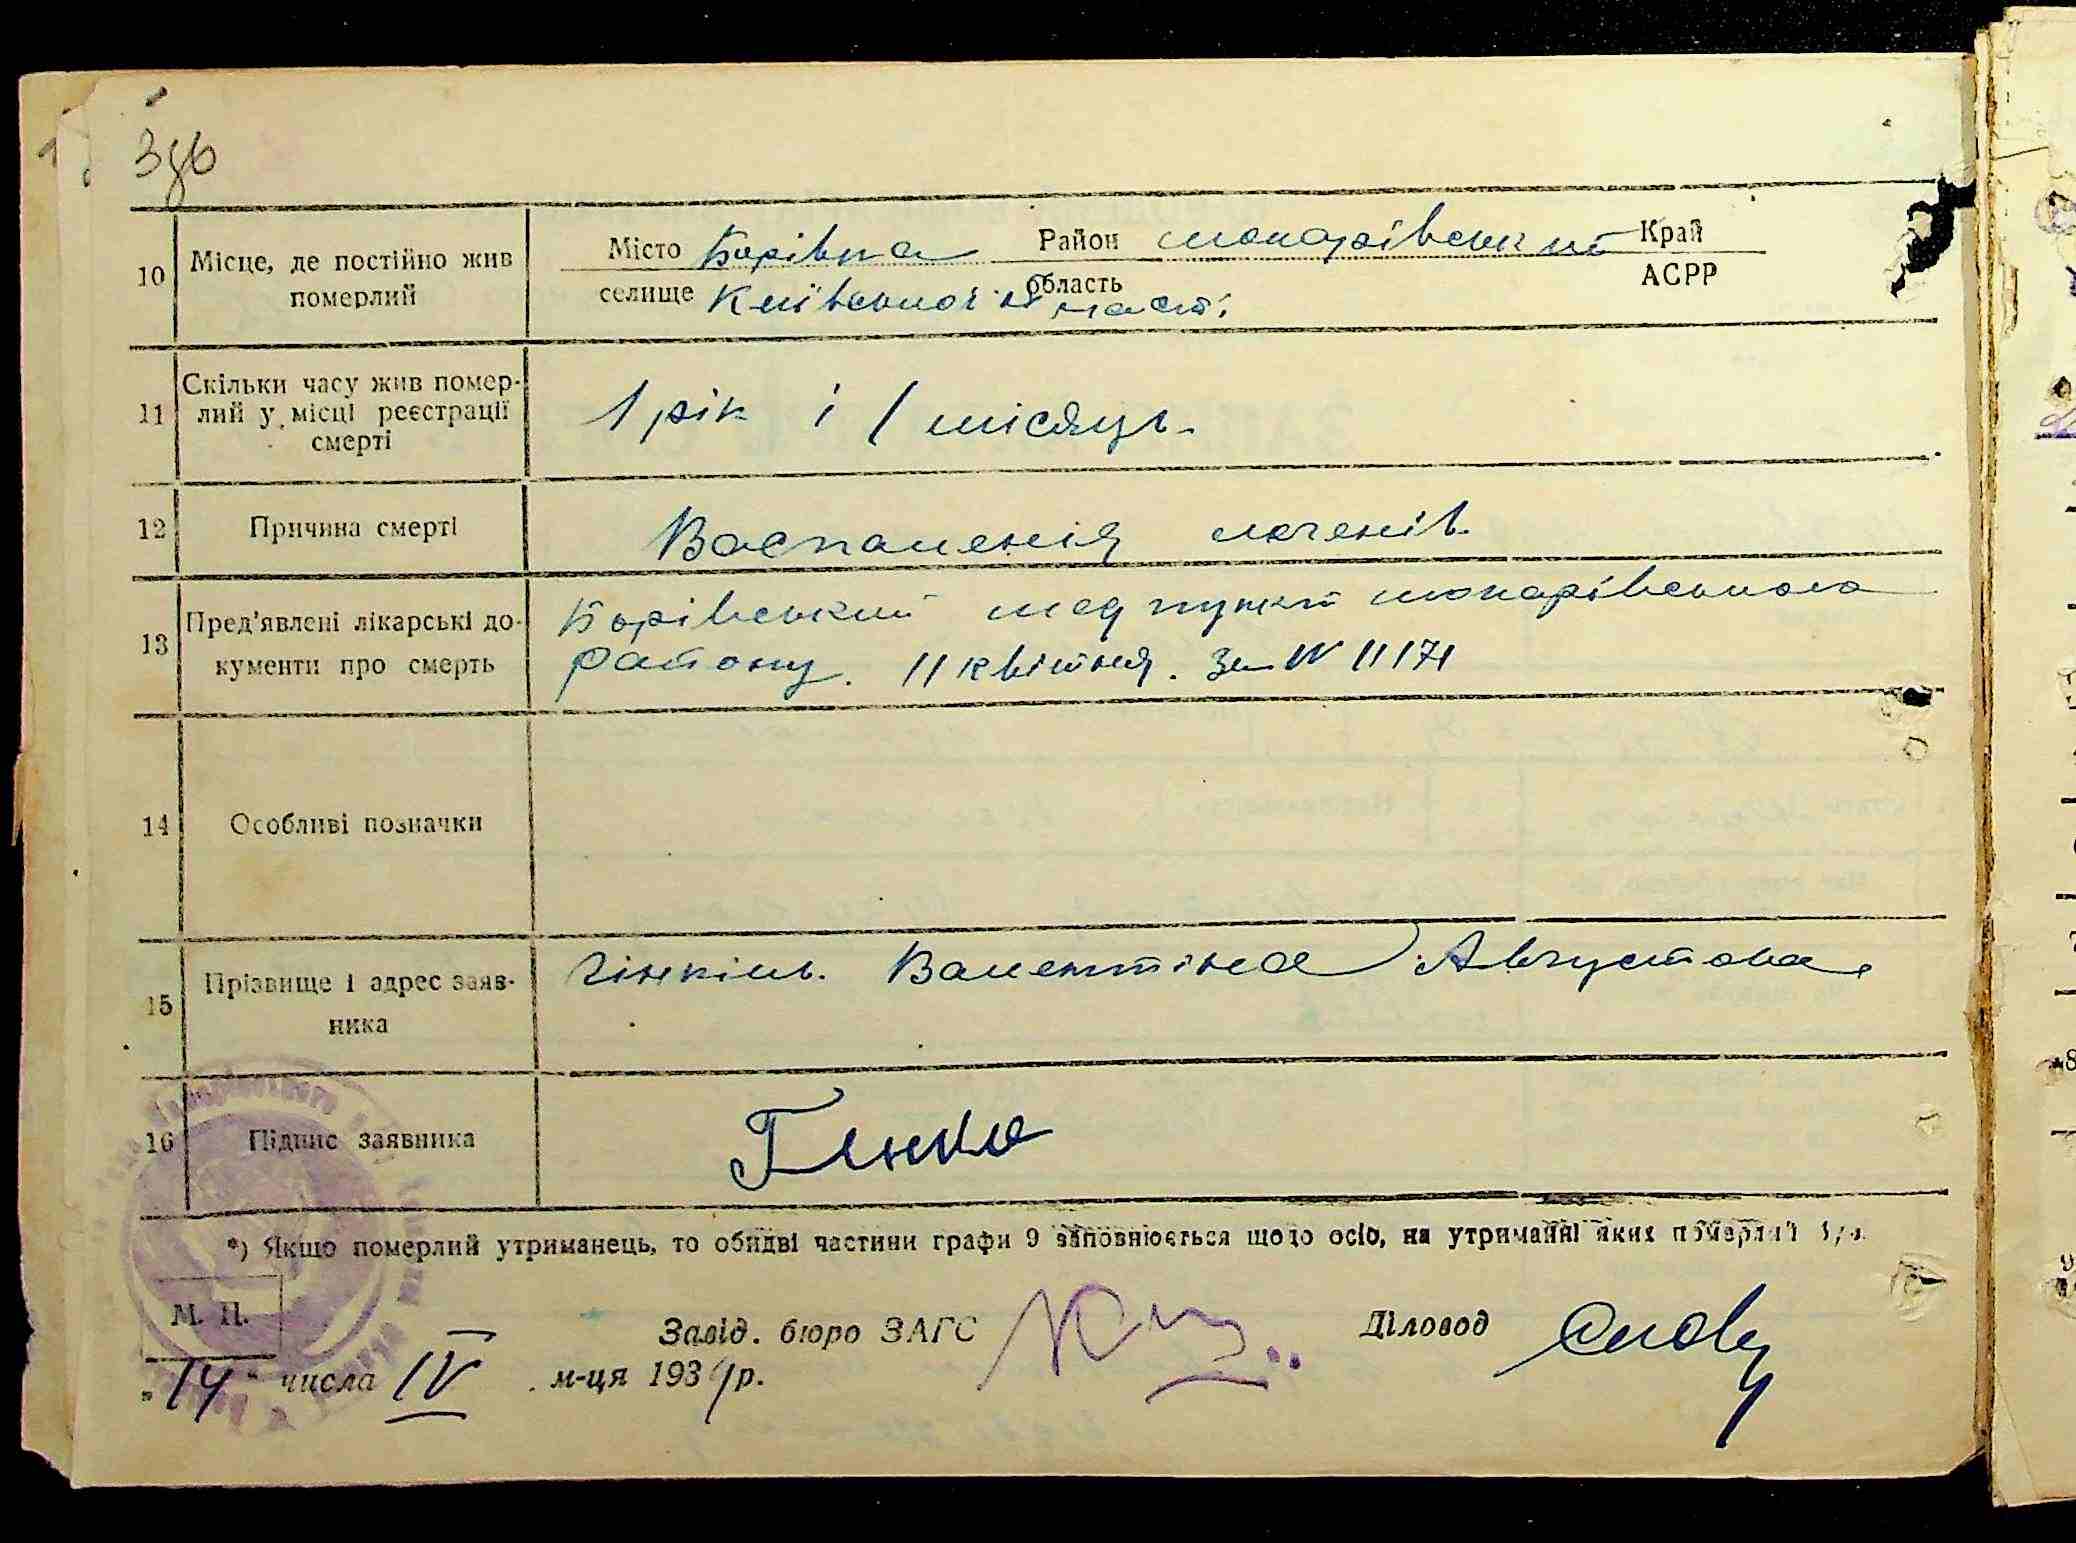 Місто Борівка Район макарівський Край
селище Київської області область АСРР
10 Місце, де постійно жив
померлий
11 Скільки часу жив помер-
лий у місці реєстрації
смерті
1 рік і 1 місяць.
12 Причина смерті
Воспаленія легенів.
13 Пред'явлені лікарські до-
кументи про смерть
Борівський мед пункт макарівського
району. 11 квітня. за № 11171
14 Особливі позначки
15 Прізвище і адрес заяв-
ника
Гінкіль. Валентіна Августова
16 Підпис заявника
*) Якщо померлий утриманець, то обидві частини графи 9 заповнюється щодо осіб, на утриманні яких померлий був
М. П.
Завід. бюро ЗАГС Діловод
„14" числа IV м-ця 193 р.